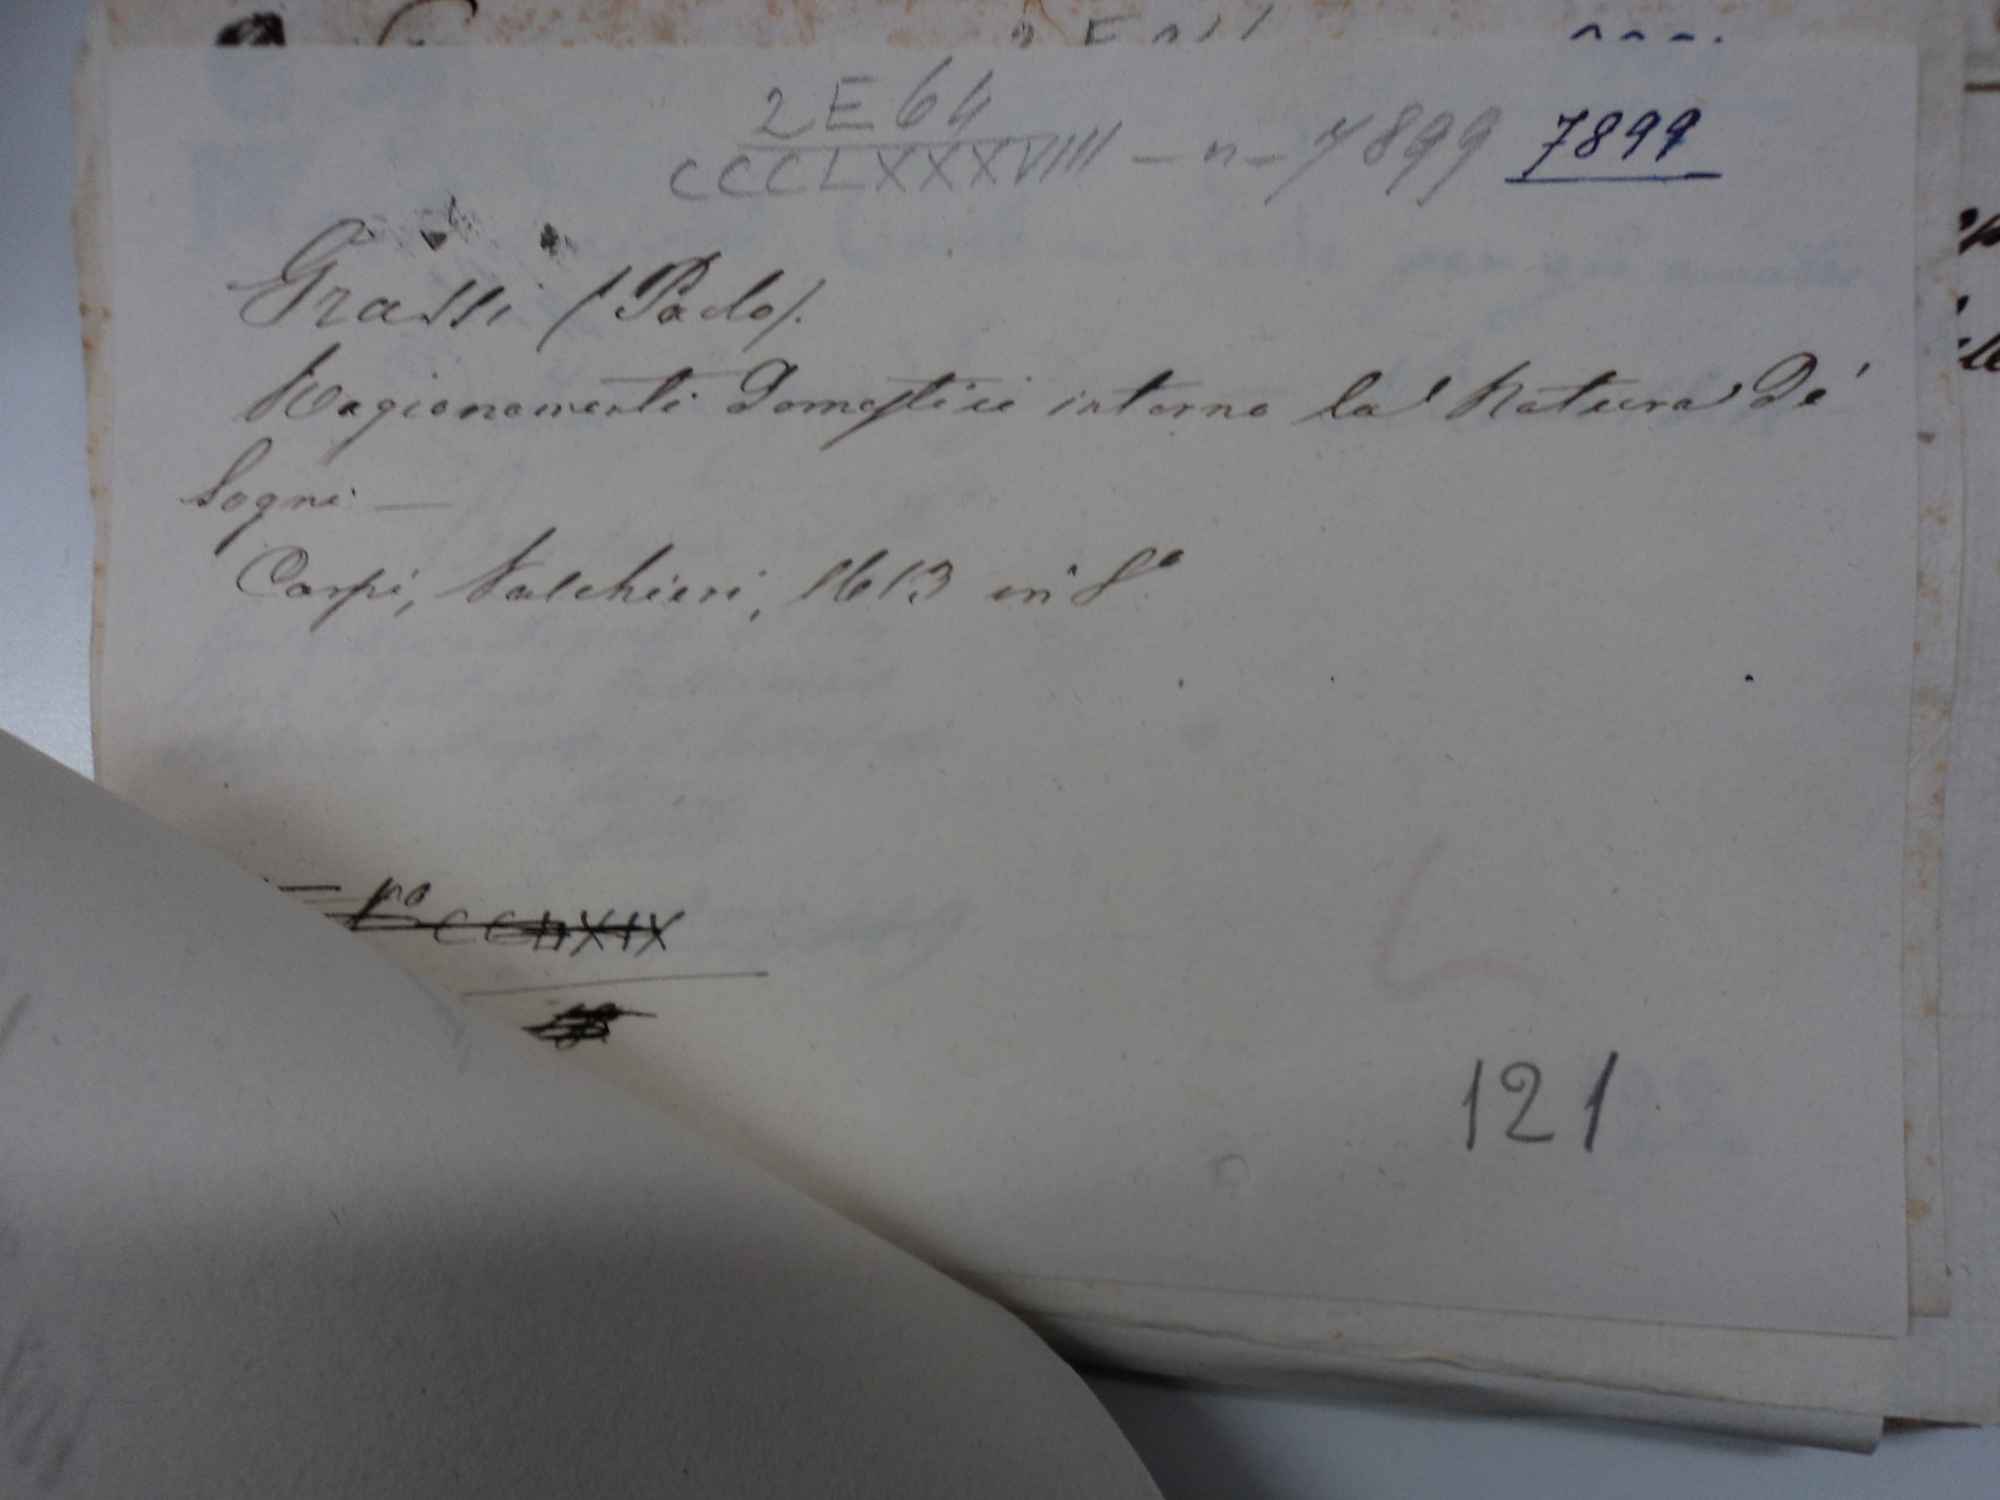 2 E 64
CCCLXXXVIII — n — 7899 7899
Grassi (Paolo).
Ragionamenti Domestici intorno la Natura De'
Sogni —
Carpi, Valchieri, 1613 in 8º
CCLXIX
121